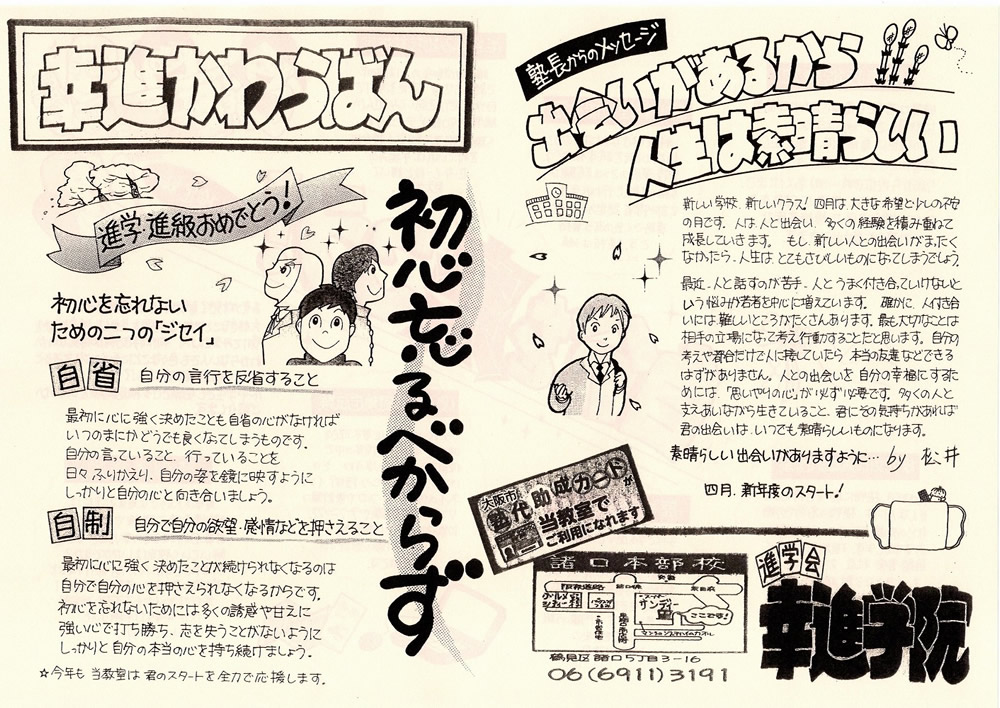 幸進かわらばん
進学・進級おめでとう!
初心忘るべからず
初心を忘れない
ための二つの「ジセイ」
自省 自分の言行を反省すること
最初に心に強く決めたことも自省の心がなければ
いつのまにかどうでも良くなってしまうものです。
自分の言っていること、行っていることを
日々ふりかえり、自分の姿を鏡に映すように
しっかりと自分の心と向き合いましょう。
自制 自分で自分の欲望・感情などを押さえること
最初に心に強く決めたことが続けられなくなるのは
自分で自分の心を押さえられなくなるからです。
初心を忘れないためには多くの誘惑や甘えに
強い心で打ち勝ち、志を失うことがないように
しっかりと自分の本当の心を持ち続けましょう。
☆今年も当教室は君のスタートを全力で応援します。
塾長からのメッセージ
出会いがあるから
人生は素晴らしい
新しい学校、新しいクラス! 四月は大きな希望と少しの不安
の月です。人は人と出会い、多くの経験を積み重ねて
成長していきます。もし、新しい人との出会いがまったく
なかったら、人生はとてもさびしいものになってしまうでしょう。
最近、人と話すのが苦手、人とうまく付き合っていけないと
いう悩みが若者を中心に増えています。確かに、人付き合
いには難しいところがたくさんあります。最も大切なことは
相手の立場になって考え行動することだと思います。自分の
考えや都合だけで人に接していたら、本当の友達などできる
はずがありません。人との出会いを自分の幸福にするた
めには、「思いやりの心」が必ず必要です。多くの人と
支えあいながら生きていること、君にその気持ちがあれば
君の出会いは、いつでも素晴らしいものになります。
素晴らしい出会いがありますように… by 松井
四月、新年度のスタート!
大阪市
塾代助成カードが
当教室で
ご利用になれます
諸口本部校
サンディ
ここです!
鶴見区諸口5丁目3-16
06(6911)3191
進学会
幸進学院